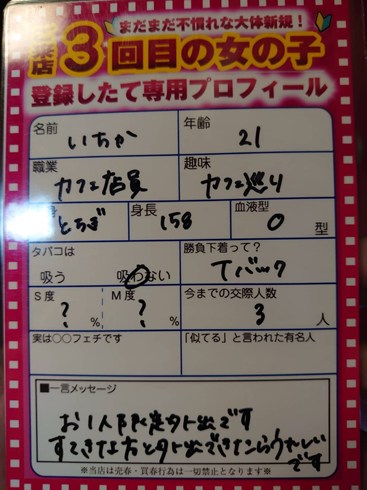 まだまだ不慣れな大体新規！
来店3回目の女の子
登録したて専用プロフィール
名前 いちか 年齢 21
職業 カフェ店員 趣味 カフェ巡り
とちぎ 身長 158 血液型 O 型
タバコは 吸う 吸わない 勝負下着って？ Tバック
S度 ? % M度 ? % 今までの交際人数 3 人
実は○○フェチです 「似てる」と言われた有名人
■一言メッセージ
お1人限定外出です
すてきな方と外出できたらうれしい
です
※当店は売春・買春行為は一切禁止となります※